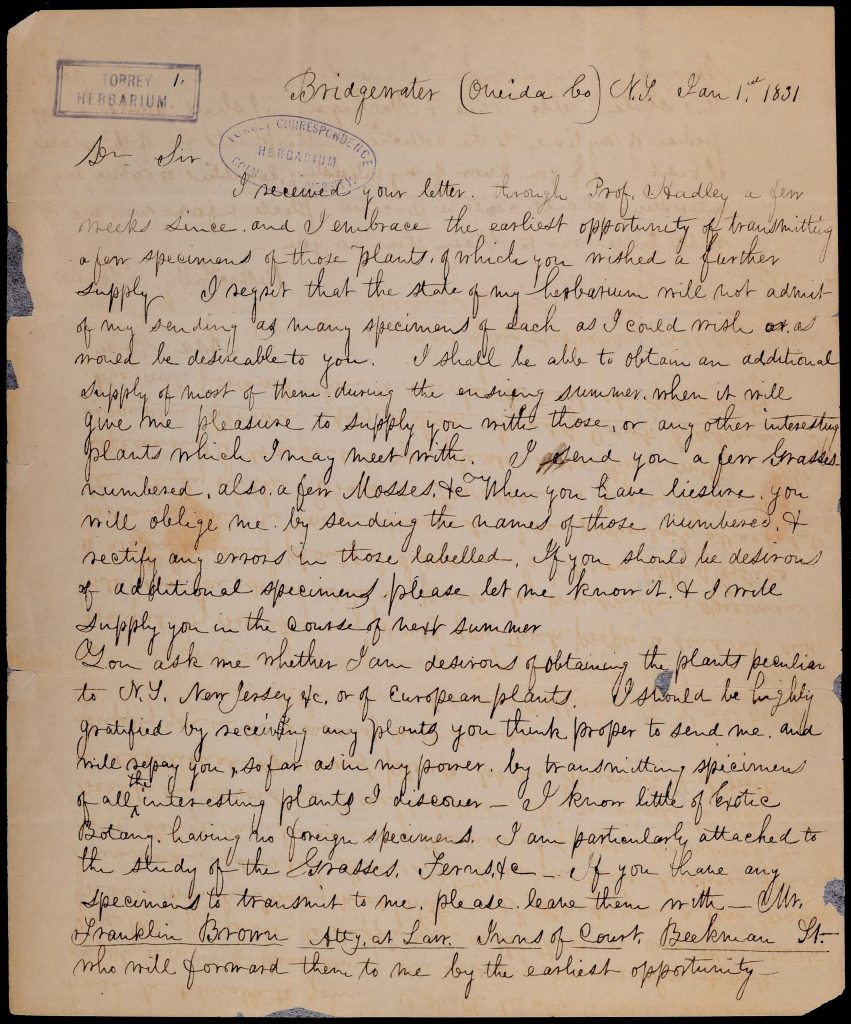 TORREY 1.
HERBARIUM.
Bridgewater (Oneida Co) N.Y. Jan 1.st 1831
TORREY CORRESPONDENCE
HERBARIUM
COLUMBIA UNIVERSITY.
Dr Sir
I received your letter. through Prof. Hadley a few
weeks since. and I embrace the earliest opportunity of transmitting
a few specimens of those plants, of which you wished a further
supply I regret that the state of my herbarium will not admit
of my sending as many specimens of each as I could wish or. as
would be desireable to you. I shall be able to obtain an additional
supply of most of them. during the ensuing summer. when it will
give me pleasure to supply you with those, or any other interesting
plants which I may meet with. I send you a few Grasses-
numbered, also. a few Mosses, &c When you have liesure. you
will oblige me. by sending the names of those numbered, &
rectify any errors in those labelled. If you should be desirous
of additional specimens please let me know it. & I will
supply you in the course of next summer
You ask me whether I am desirous of obtaining the plants peculiar
to N.Y. New Jersey &c. or of European plants. I should be highly
gratified by receiving any plants you think proper to send me. and
will repay you, so far as in my power. by transmitting specimens
of all the interesting plants I discover — I know little of Exotic
Botany. having no foreign specimens. I am particularly attached to
the study of the Grasses, Ferns, &c — If you have any
specimens to transmit to me. please leave them with — Mr.
Franklin Brown Atty. at Law. Inns of Court. Beekman St.-
who will forward them to me by the earliest opportunity —